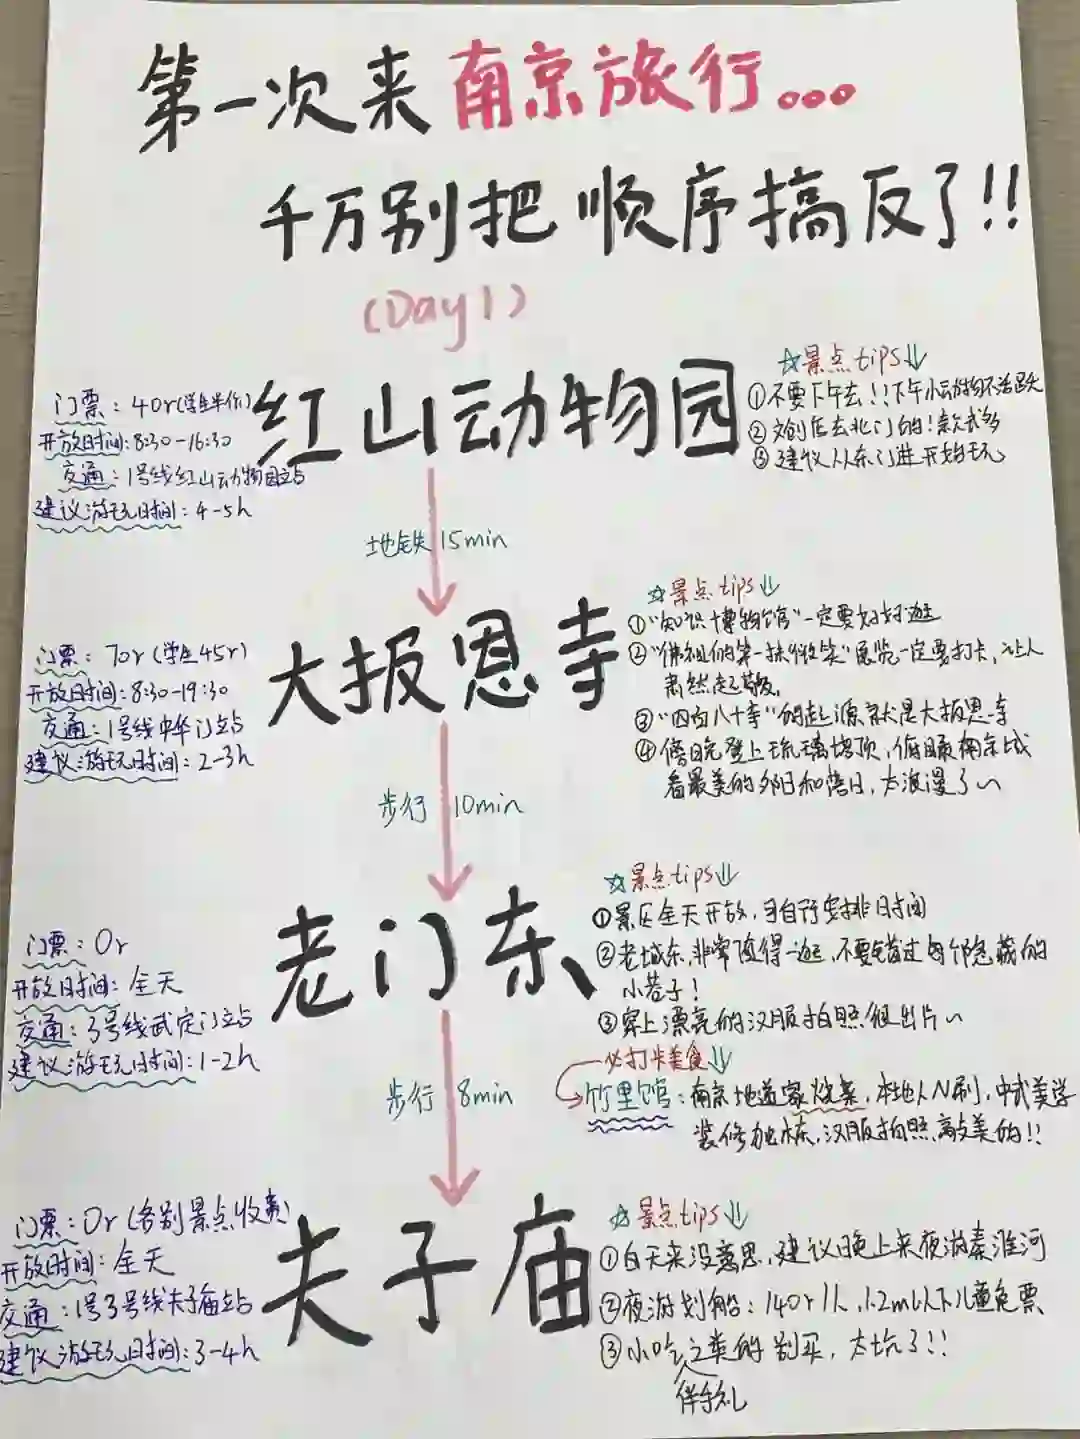 第一次来南京旅行...
千万别把顺序搞反了!!
(Day1)
红山动物园
门票：40r(学生半价)
开放时间：8:30-16:30
交通：1号线红山动物园站
建议游玩时间：4-5h
☆景点tips↓
①不要下午去!!下午小动物不活跃
②文创店去北门的!款式多
③建议从东门进开始玩
地铁 15min
大报恩寺
门票：70r(学生45r)
开放时间：8:30-19:30
交通：1号线中华门站
建议游玩时间：2-3h
☆景点tips↓
①"知识博物馆"一定要好好逛
②"佛祖们的第一抹微笑"展览一定要打卡，让人
肃然起敬。
③"四百八十寺"的起源就是大报恩寺
④傍晚登上琉璃塔顶，俯瞰南京城
看最美的夕阳和落日，太浪漫了~
步行 10min
老门东
门票：0r
开放时间：全天
交通：3号线武定门站
建议游玩时间：1-2h
☆景点tips↓
①景区全天开放，可自行安排时间
②老城东，非常值得一逛，不要错过每个隐藏的
小巷子!
③穿上漂亮的汉服拍照很出片~
必打卡美食↓
竹里馆：南京地道家烧菜，本地人N刷，中式美学
装修加持，汉服拍照敲美的!!
步行 8min
夫子庙
门票：0r(各别景点收费)
开放时间：全天
交通：1号3号线夫子庙站
建议游玩时间：3-4h
☆景点tips↓
①白天来没意思，建议晚上来夜游秦淮河
②夜游划船：140r/人，1.2m以下儿童免票
③小吃之类的别买，太坑了!!
伴手礼